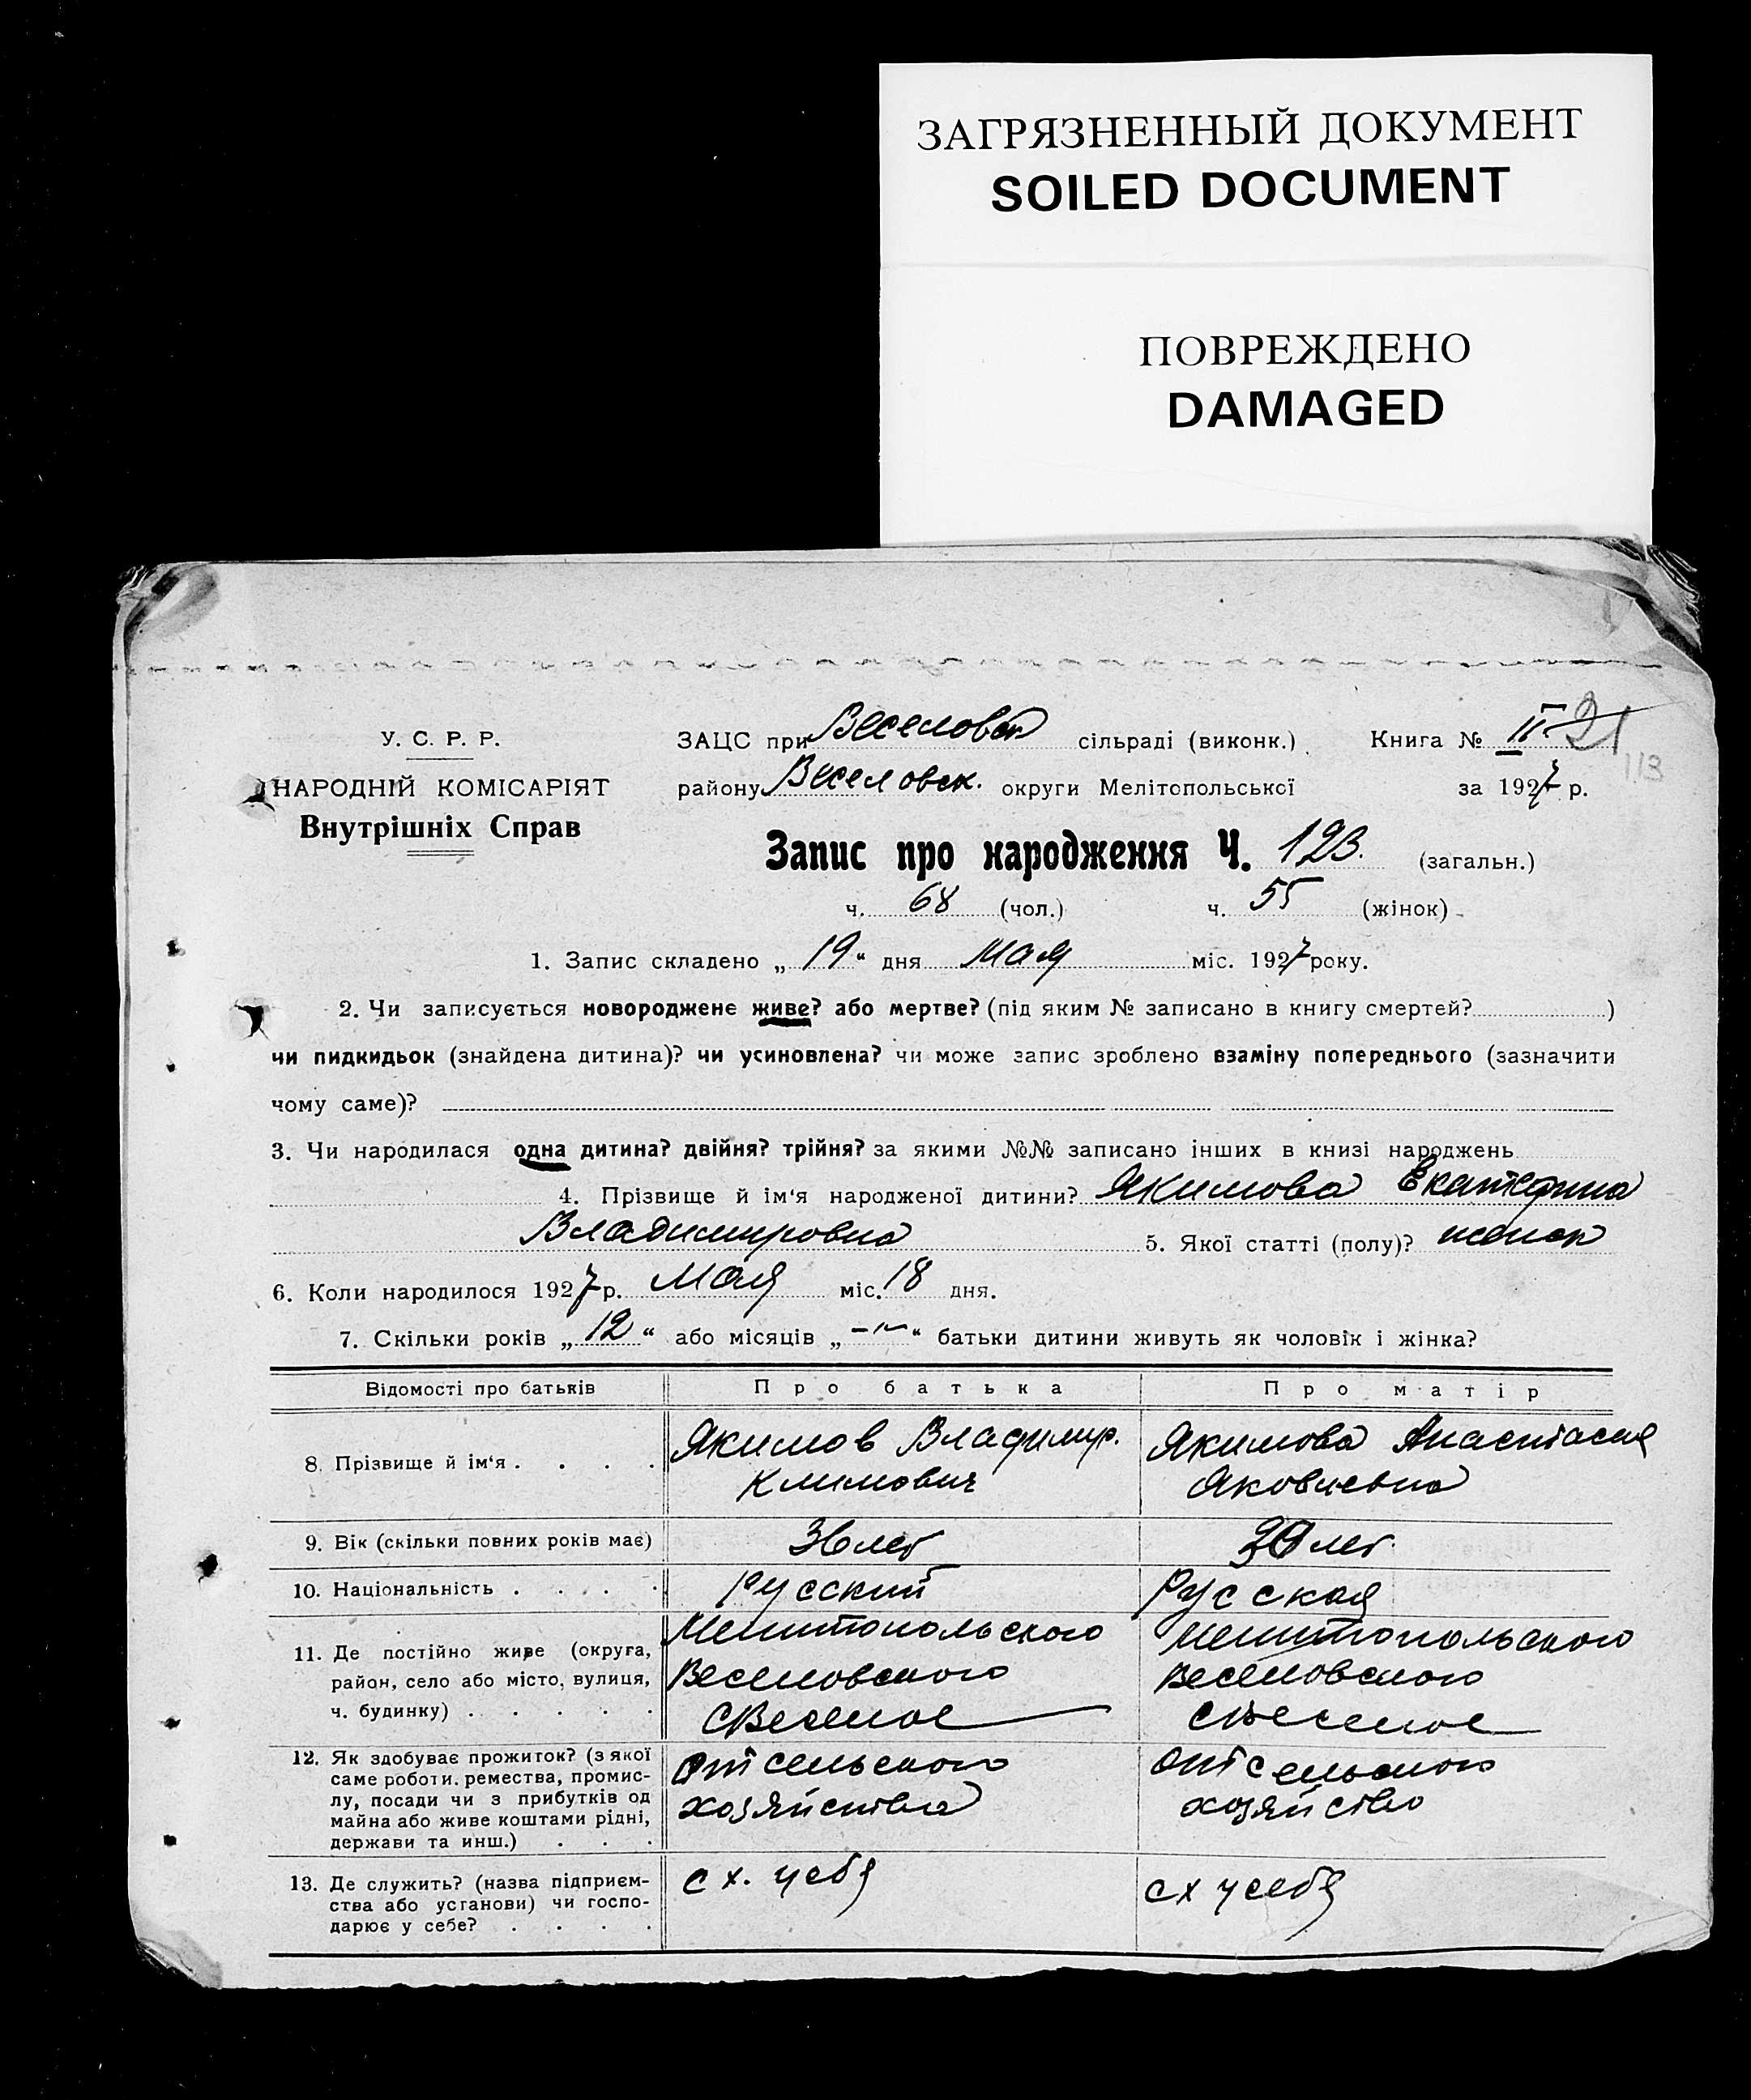 ЗАГРЯЗНЕННЫЙ ДОКУМЕНТ
SOILED DOCUMENT
ПОВРЕЖДЕНО
DAMAGED
У. С. Р. Р.
НАРОДНІЙ КОМІСАРІЯТ
Внутрішніх Справ
ЗАЦС при Веселовск сільраді (виконк.) Книга № II 21
113
району Веселовск. округи Мелітопольської за 1927 р.
Запис про народження Ч. 123. (загальн.)
ч. 68 (чол.) ч. 55 (жінок)
1. Запис складено „ 19 “ дня мая міс. 1927 року.
2. Чи записується новороджене живе? або мертве? (під яким № записано в книгу смертей? )
чи пидкидьок (знайдена дитина)? чи усиновлена? чи може запис зроблено взаміну попереднього (зазначити
чому саме)?
3. Чи народилася одна дитина? двійня? трійня? за якими №№ записано інших в книзі народжень
4. Прізвище й ім‘я народженої дитини? Якимова Екатерина
Владимировна 5. Якої статті (полу)? женск
6. Коли народилося 1927 р. Мая міс. 18 дня.
7. Скільки років „ 12 “ або місяців „ -"- “ батьки дитини живуть як чоловік і жінка?
Відомості про батьків Про батька Про матір
8. Прізвище й ім‘я . . . . Якимов Владимир. Якимова Анастасия
Климович Яковлевна
9. Вік (скільки повних років має) 36 лет лет.
10. Національність . . . . Русский Русская
11. Де постійно живе (округа, Мелитопольского Мелитопольского
район, село або місто, вулиця, Веселовского Веселовского
ч. будинку) . . . . . С Веселое с Веселое
12. Як здобуває прожиток? (з якої От сельского От сельского
саме роботи. ремества, промис-
лу, посади чи з прибутків од хозяйства хозяйство
майна або живе коштами рідні,
держави та инш.) . . .
13. Де служить? (назва підприєм- с х. у себя с х у себя
ства або установи) чи госпо-
дарює у себе? . . . .